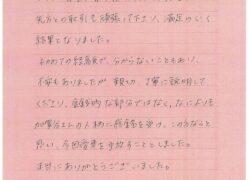 先方との取引を頑張って下さり、満足のいく
結果となりました。
初めての経験で、分からないこともあり、
不安もありましたが 親切、丁寧に説明して
くださり、金銭的な部分ではなく、なによりも
加賀谷さんの人柄に感銘を受け、この方ならと
思い、今回愛車を手放すことにしました。
本当にありがとうございました。